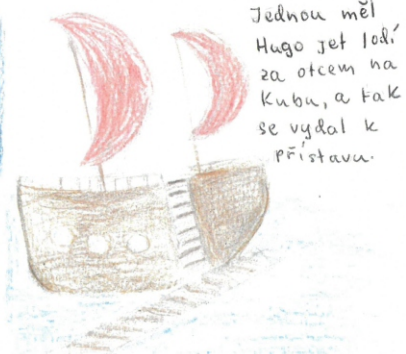 Jednou měl
Hugo jet lodí
za otcem na
Kubu, a tak
se vydal k
přístavu.